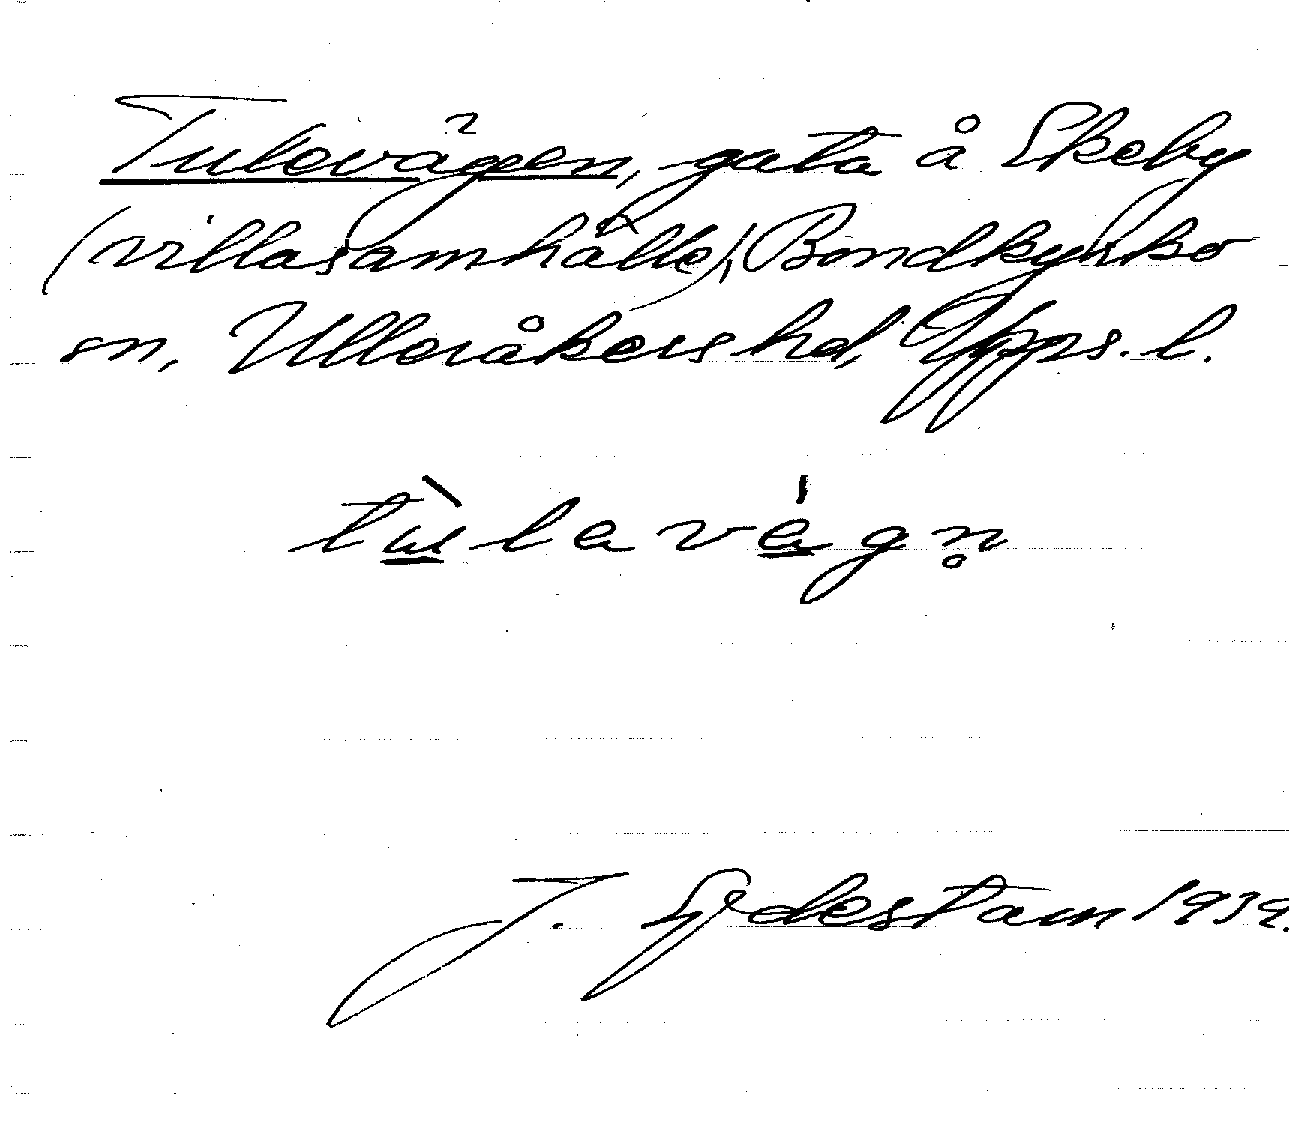 Tulevägen, gata å Skeby
(villasamhälle), Bondkyrko
sn, Ulleråkers hd, Upps. l.
tùlavágn̥
J. Sydestam 1939.